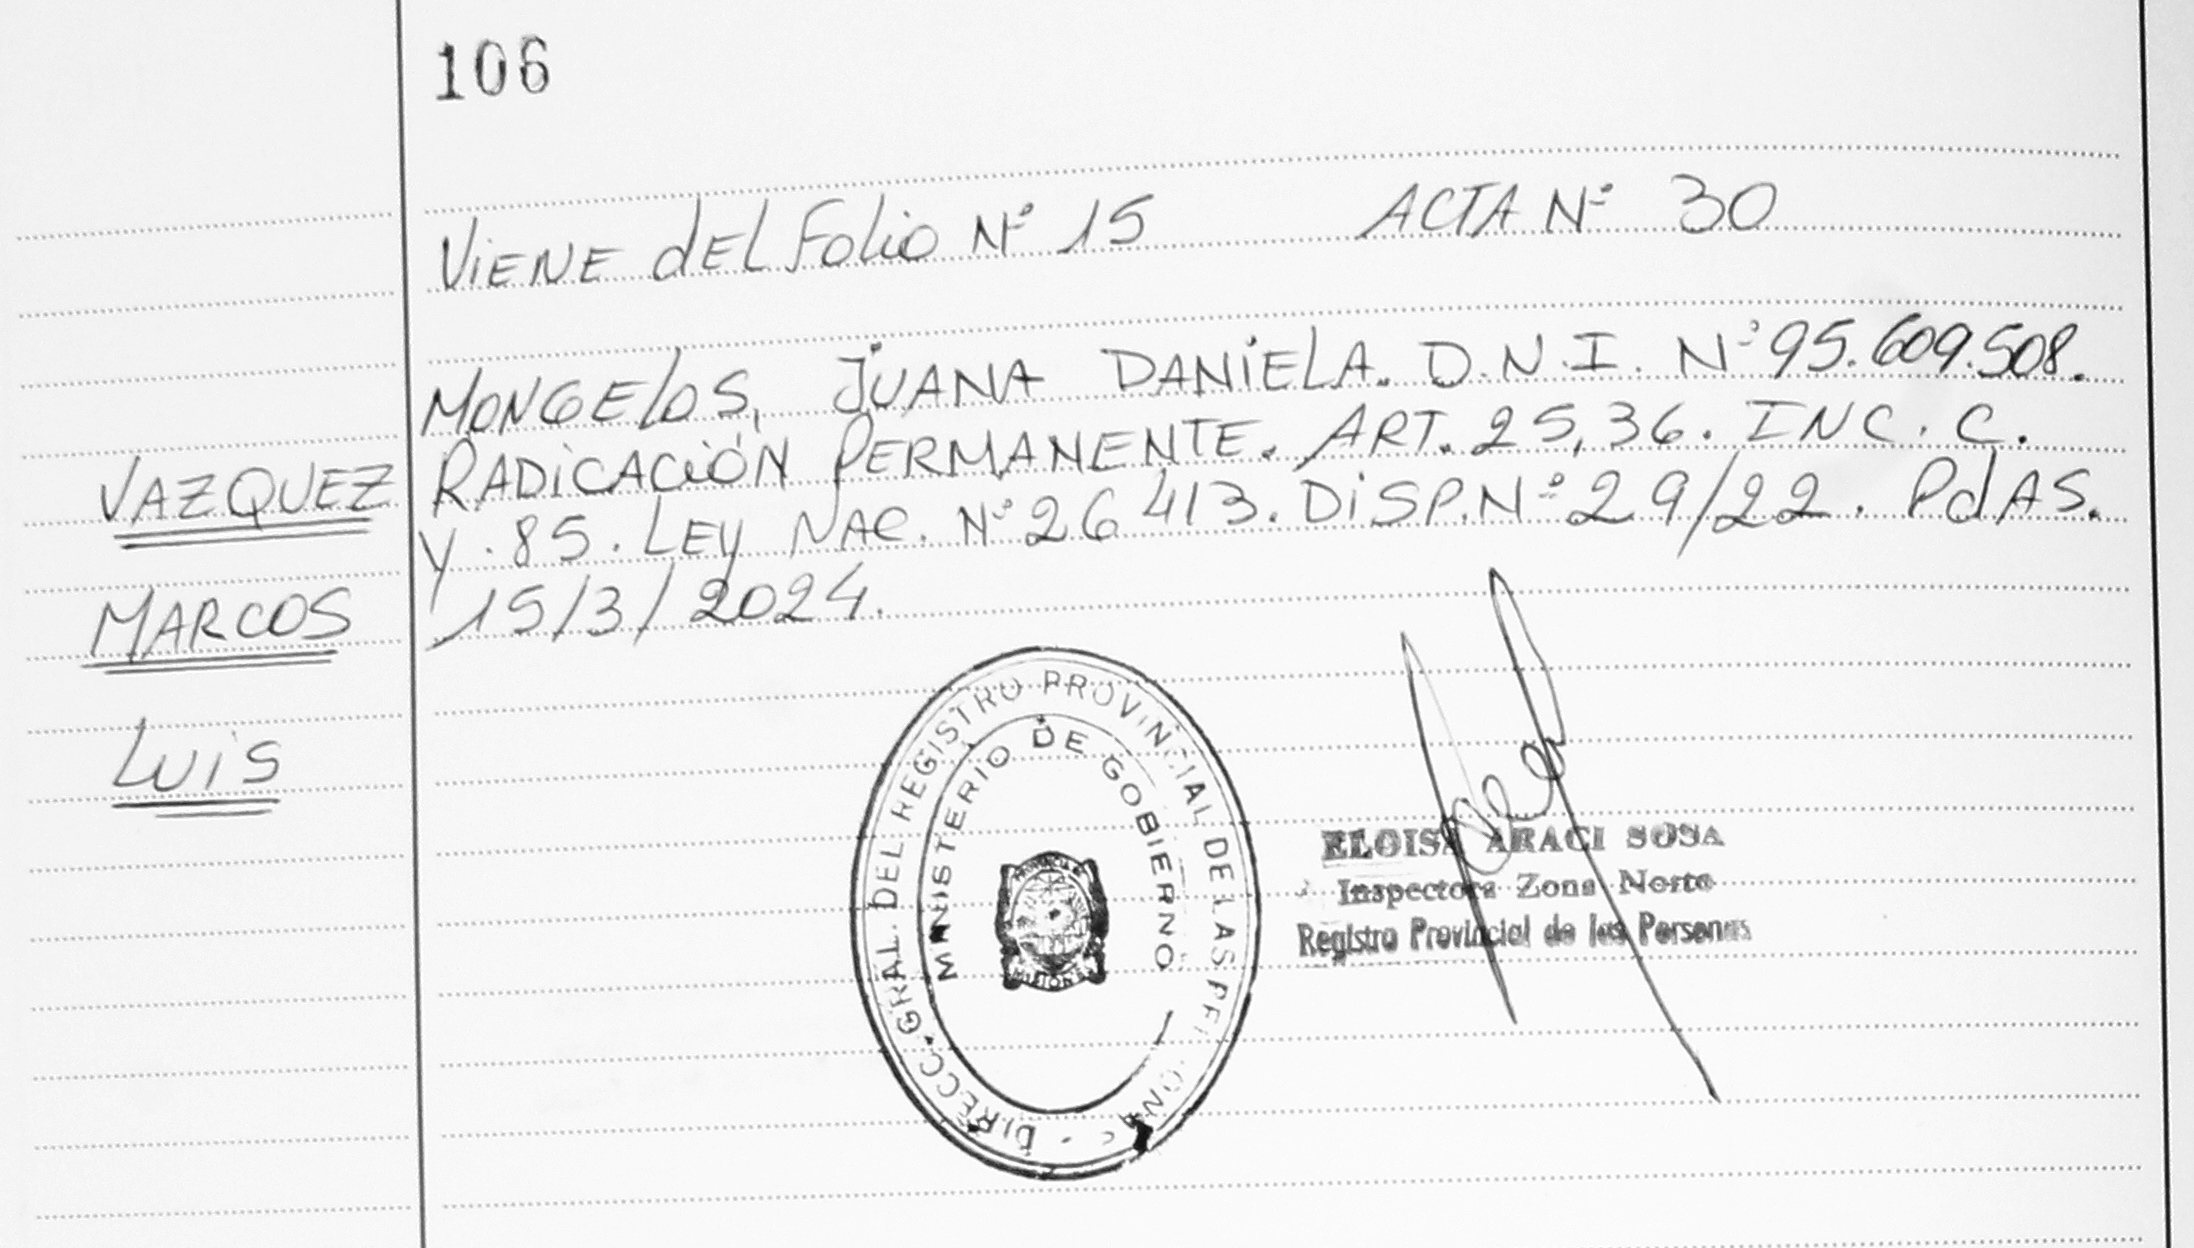 106
ViENE dEL Folio Nº 15 ACTA Nº 30
MONGElos, JUANA DANiELA. D.N.I. Nº 95.609.508.
RADiCACiÓN PERMANENTE. ART. 25,36. INC. C.
y .85. LEy NAC. Nº 26413. DiSP.Nº 29/22. PdAS.
15/3/2024.
VAZQUEZ
MARCOS
LUiS
DIRECC. GRAL. DEL REGISTRO PROVINCIAL DE LAS
MINISTERIO DE GOBIERNO
ELOISA ARACI SOSA
Inspectora Zona Norte
Registro Provincial de las Personas